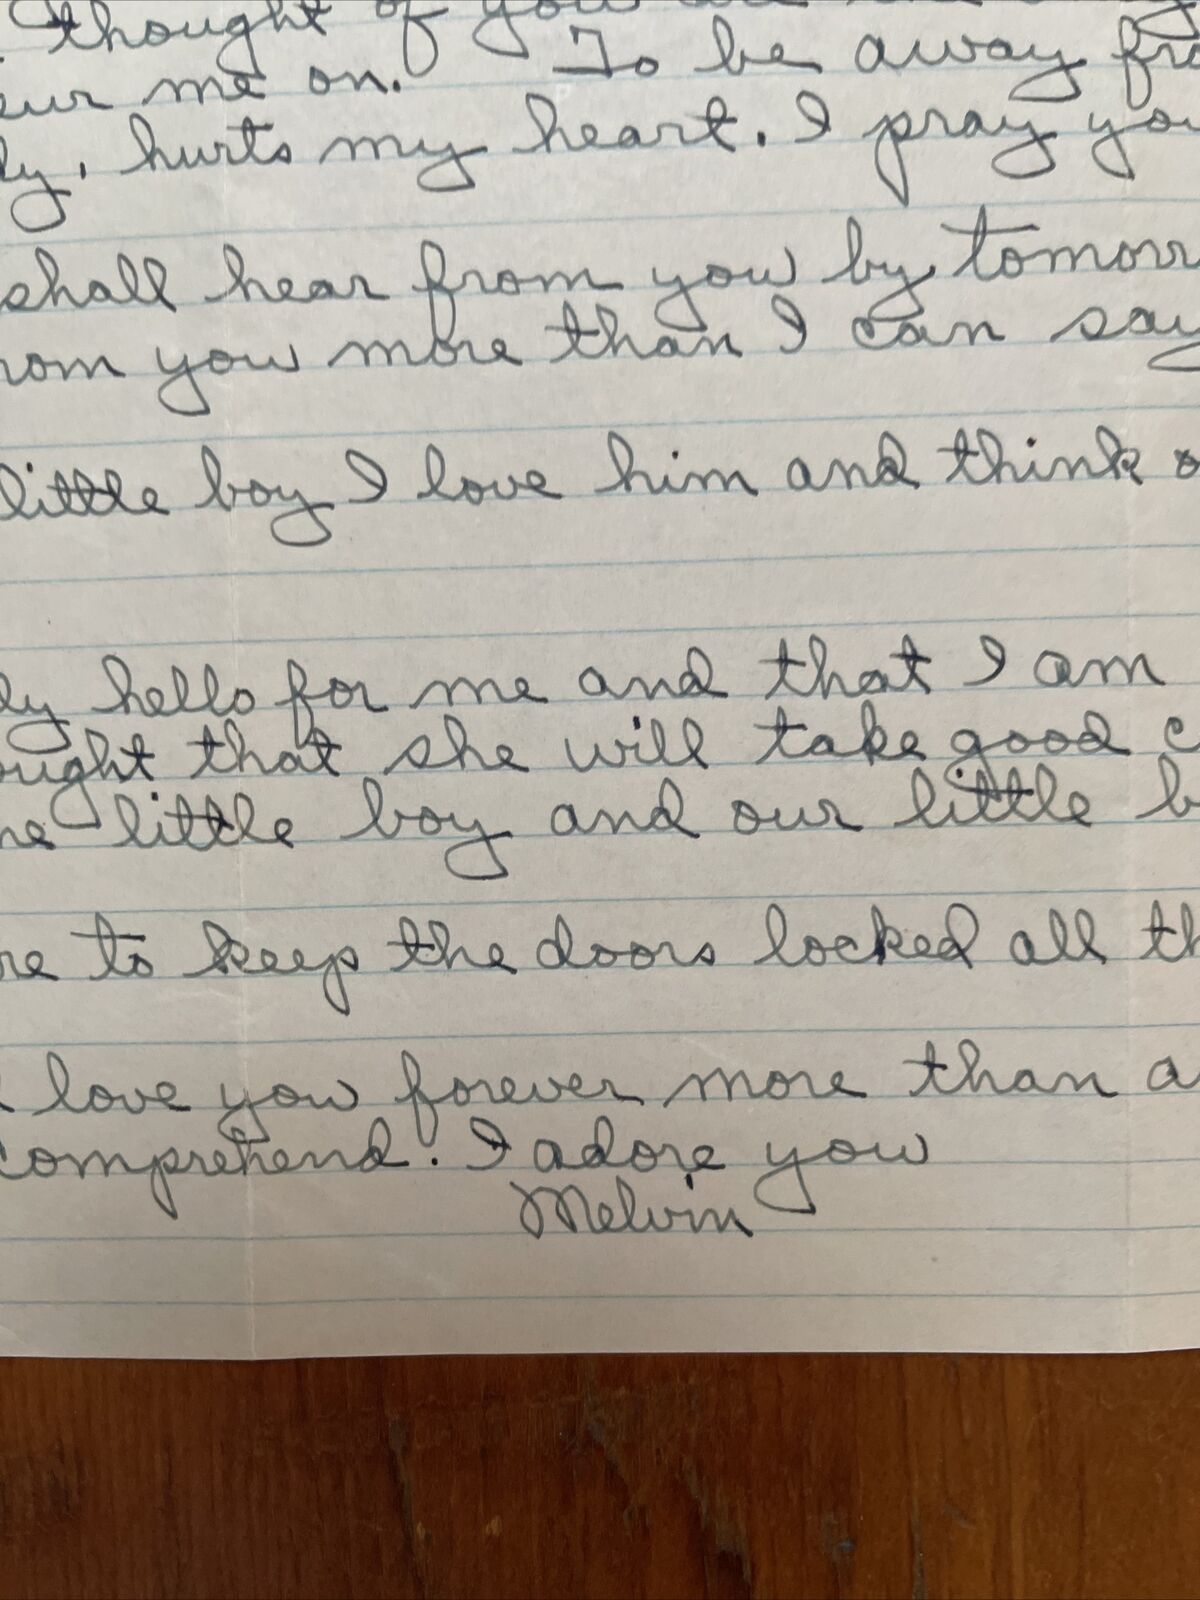 thought of you are the
eur me on. To be away fro
ly, hurts my heart. I pray you
shall hear from you by tomorr
rom you more than I can say
little boy I love him and think o
dy hello for me and that I am
ought that she will take good c
ne little boy and our little b
re to keep the doors locked all th
love you forever more than a
comprehend. I adore you
Melvin